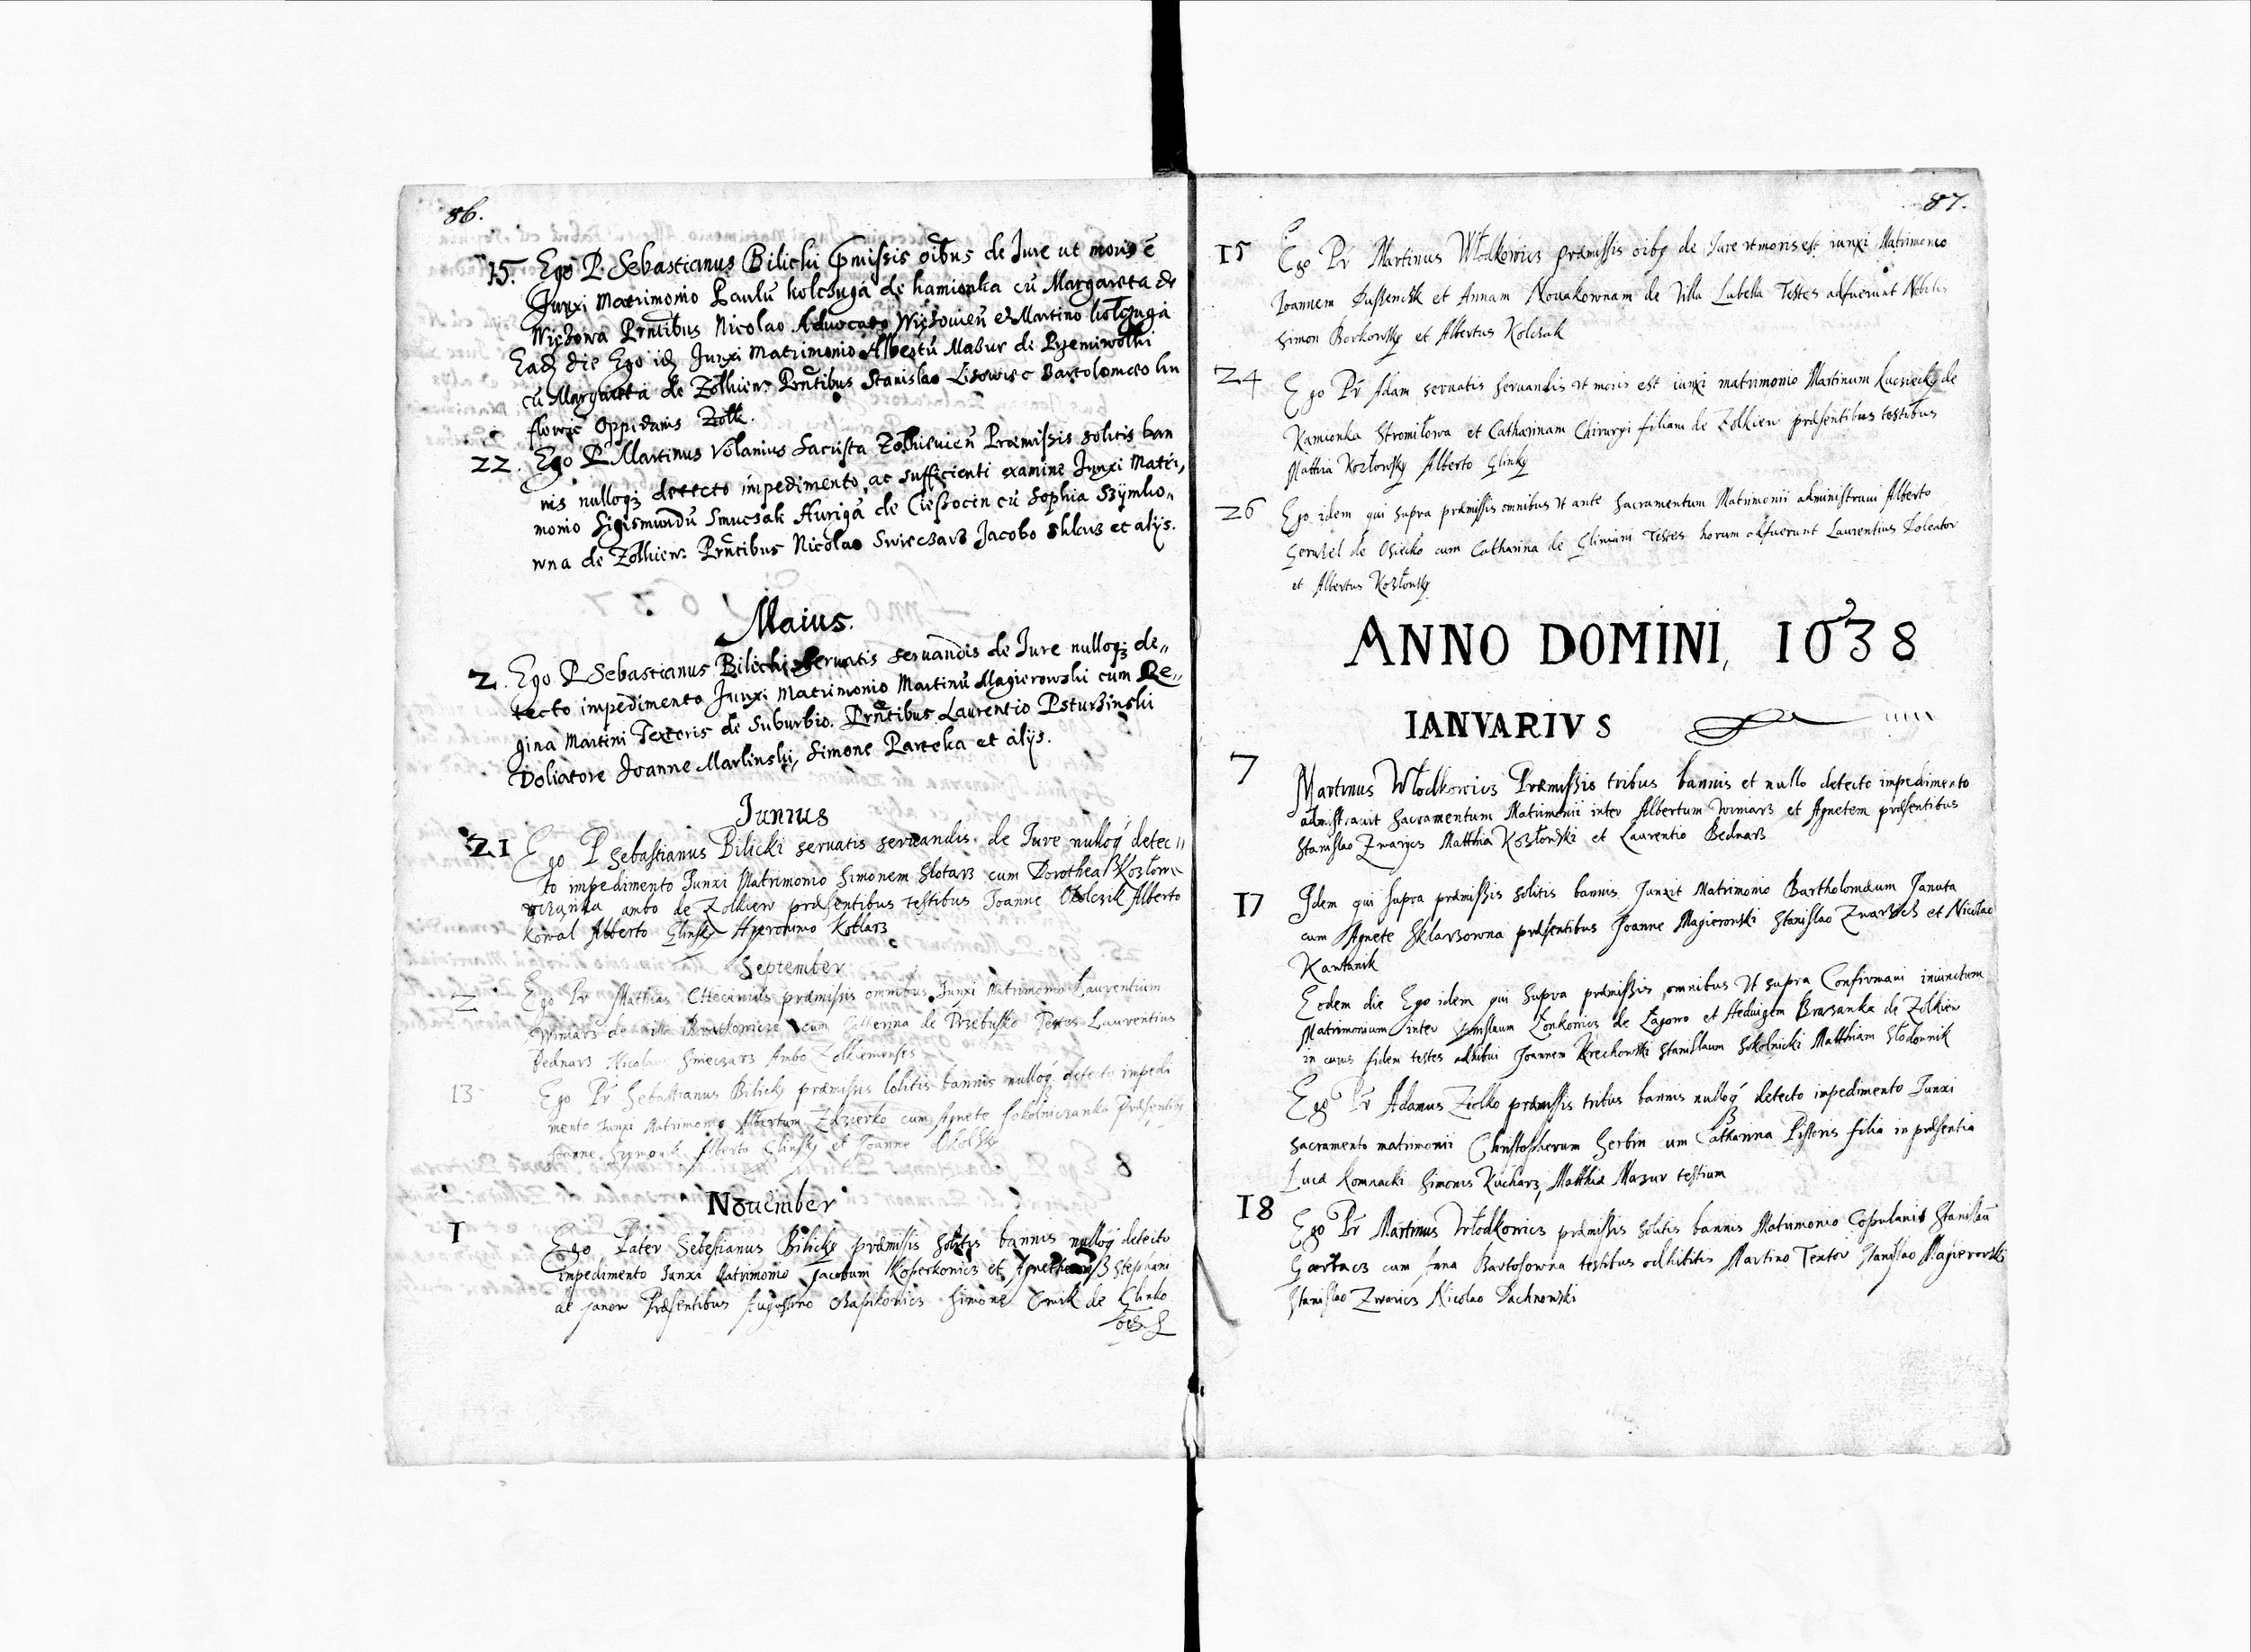 86.
15. Ego P. Sebastianus Bilicki pmissis oibus de Iure ut moris ē
Junxi Matrimonio Paulū kolczuga de kamionka cū Margareta de
Wiązowa Pntibus Nicolao Advocato Wiązovien et Martino kolczuga
Eadē die Ego idē Junxi Matrimonio Albertū Mazur de Przemiwolki
cū Margareta de Zolkiew. Pntibus Stanislao Lisowic Bartolomeo
Oppidanis Zolk.
22. Ego P Martinus Volanius Sacrista Zolkievien Præmissis solitis ban
nis nulloq3 detecto impedimento, ac sufficienti examine Junxi Matri,,
monio Sigismundū Smuczak Aurigā de Cieszocin cū Sophia Szymko,,
wna de Zolkiew. Pntibus Nicolao Swieczarz Jacobo Shlarz et alijs.
Maius.
2. Ego P Sebastianus Bilicki Servatis servandis de Iure nulloq3 de,,
tecto impedimento Junxi Matrimonio Martinū Magierowski cum Re,,
gina Martini Textoris de Suburbio. Pntibus Laurentio Psturzinski
Doliatore Joanne Marlinski, Simone Parteka et alijs.
Junius
21 Ego P Sebastianus Bilicki servatis servandis de Iure nulloq detec,,
to impedimento Junxi Matrimonio Simonem Slotarz cum Dorothea
ambo de Zolkiew præsentibus testibus Joanne Alberto
Kowal Alberto Glinsky Hyeronimo Kotlarz
September
2 Ego Pr Mathias præmissis omnibus Junxi Matrimonio Laurentium
Winiarz de villa cum de Przebusko Testes Laurentius
Bednarz Nicolaus Swieczarz Ambo Zolkiewienses
13 Ego Pr Sebastianus Bilicky præmissis solitis bannis nulloq detecto impedi
mento Junxi Matrimonio Albertum cum Agnete Sokolniczanka Præsentibus
Joanne Szymonik Alberto Glinsky et Joanne
November
1 Ego Pater Sebestianus Bilicky præmissis solitis bannis nulloq detecto
impedimento Junxi Matrimonio Jacobum Koperkonicz et Stephani
de Janow Præsentibus Augustino Simone de Glinsko
87.
15 Ego Pr Martinus Włodkowicz præmissis oibq de Iure ut moris est iunxi Matrimonio
Joannem et Annam Nouakownam de Villa Lubella Testes adfuerunt Nobilis
Simon Borkowsky et Albertus Kolczak
24 Ego Pr Adam servatis servandis ut moris est iunxi matrimonio Martinum de
Kamionka Stromiłowa et Catharinam Chirurgi filiam de Zolkiew præsentibus testibus
Mathia Kozłowsky Alberto Glinky
26 Ego idem qui supra præmissis omnibus ut ante Sacramentum Matrimonii administraui Alberto
de Osiecko cum Catharina de Gliniani Testes horum adfuerunt Laurentius Doleator
et Albertus Kozłowsky
ANNO DOMINI, 1638
IANVARIVS
7 Martinus Włodkowicz Præmissis tribus bannis et nullo detecto impedimento
admistrauit Sacramentum Matrimonii inter Albertum Winiarz et Agnetem præsentibus
Stanislao Zwarycz Matthia Kozłowski et Laurentio Bednarz
17 Idem qui supra præmissis solitis bannis Junxit Matrimonio Bartholomæum Janata
cum Agnete Sklarzowna præsentibus Joanne Magierowski Stanislao et Nicolao
Kantanik
Eodem die Ego idem qui supra præmissis omnibus ut supra Confirmaui iniunctum
Matrimonium inter Stanislaum Łonkowicz de Łagowo et Heduigem Brazanka de Zolkiew
in cuius fidem testes adhibui Joannem Krechowski Stanislaum Sokolnicki Matthiam Słodownik
Ego Pr Adamus Ziolko præmissis tribus bannis nulloq detecto impedimento Junxi
Sacramento matrimonii Christopherum Serbin cum Catharina Pistoris filia in præsentia
Lucæ Komnacki Simonis Kucharz, Matthiæ Mazur testium
18 Ego Pr Martinus Włodkowicz præmissis solitis bannis Matrimonio Copulauit Stanislaū
Garbacz cum Anna Bartosowna testibus adhibitis Martino Textor Stanislao Magierowski
Stanislao Zwaricz Nicolao Dachnowski